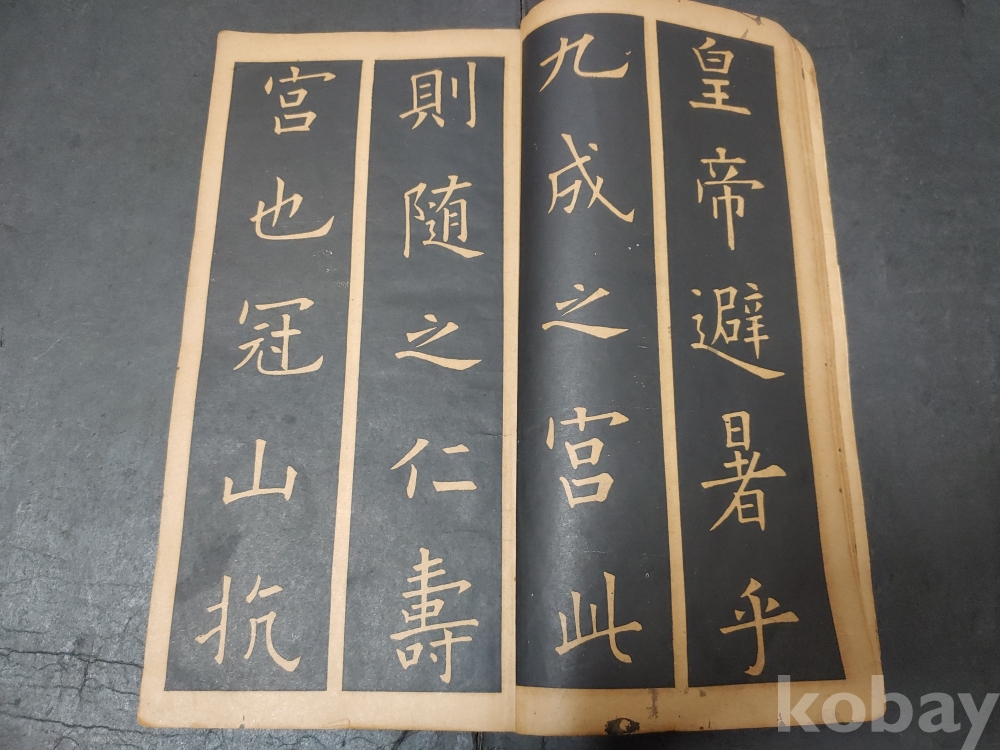 皇帝避暑乎
九成之宮此
則随之仁壽
宮也冠山抗
kobay